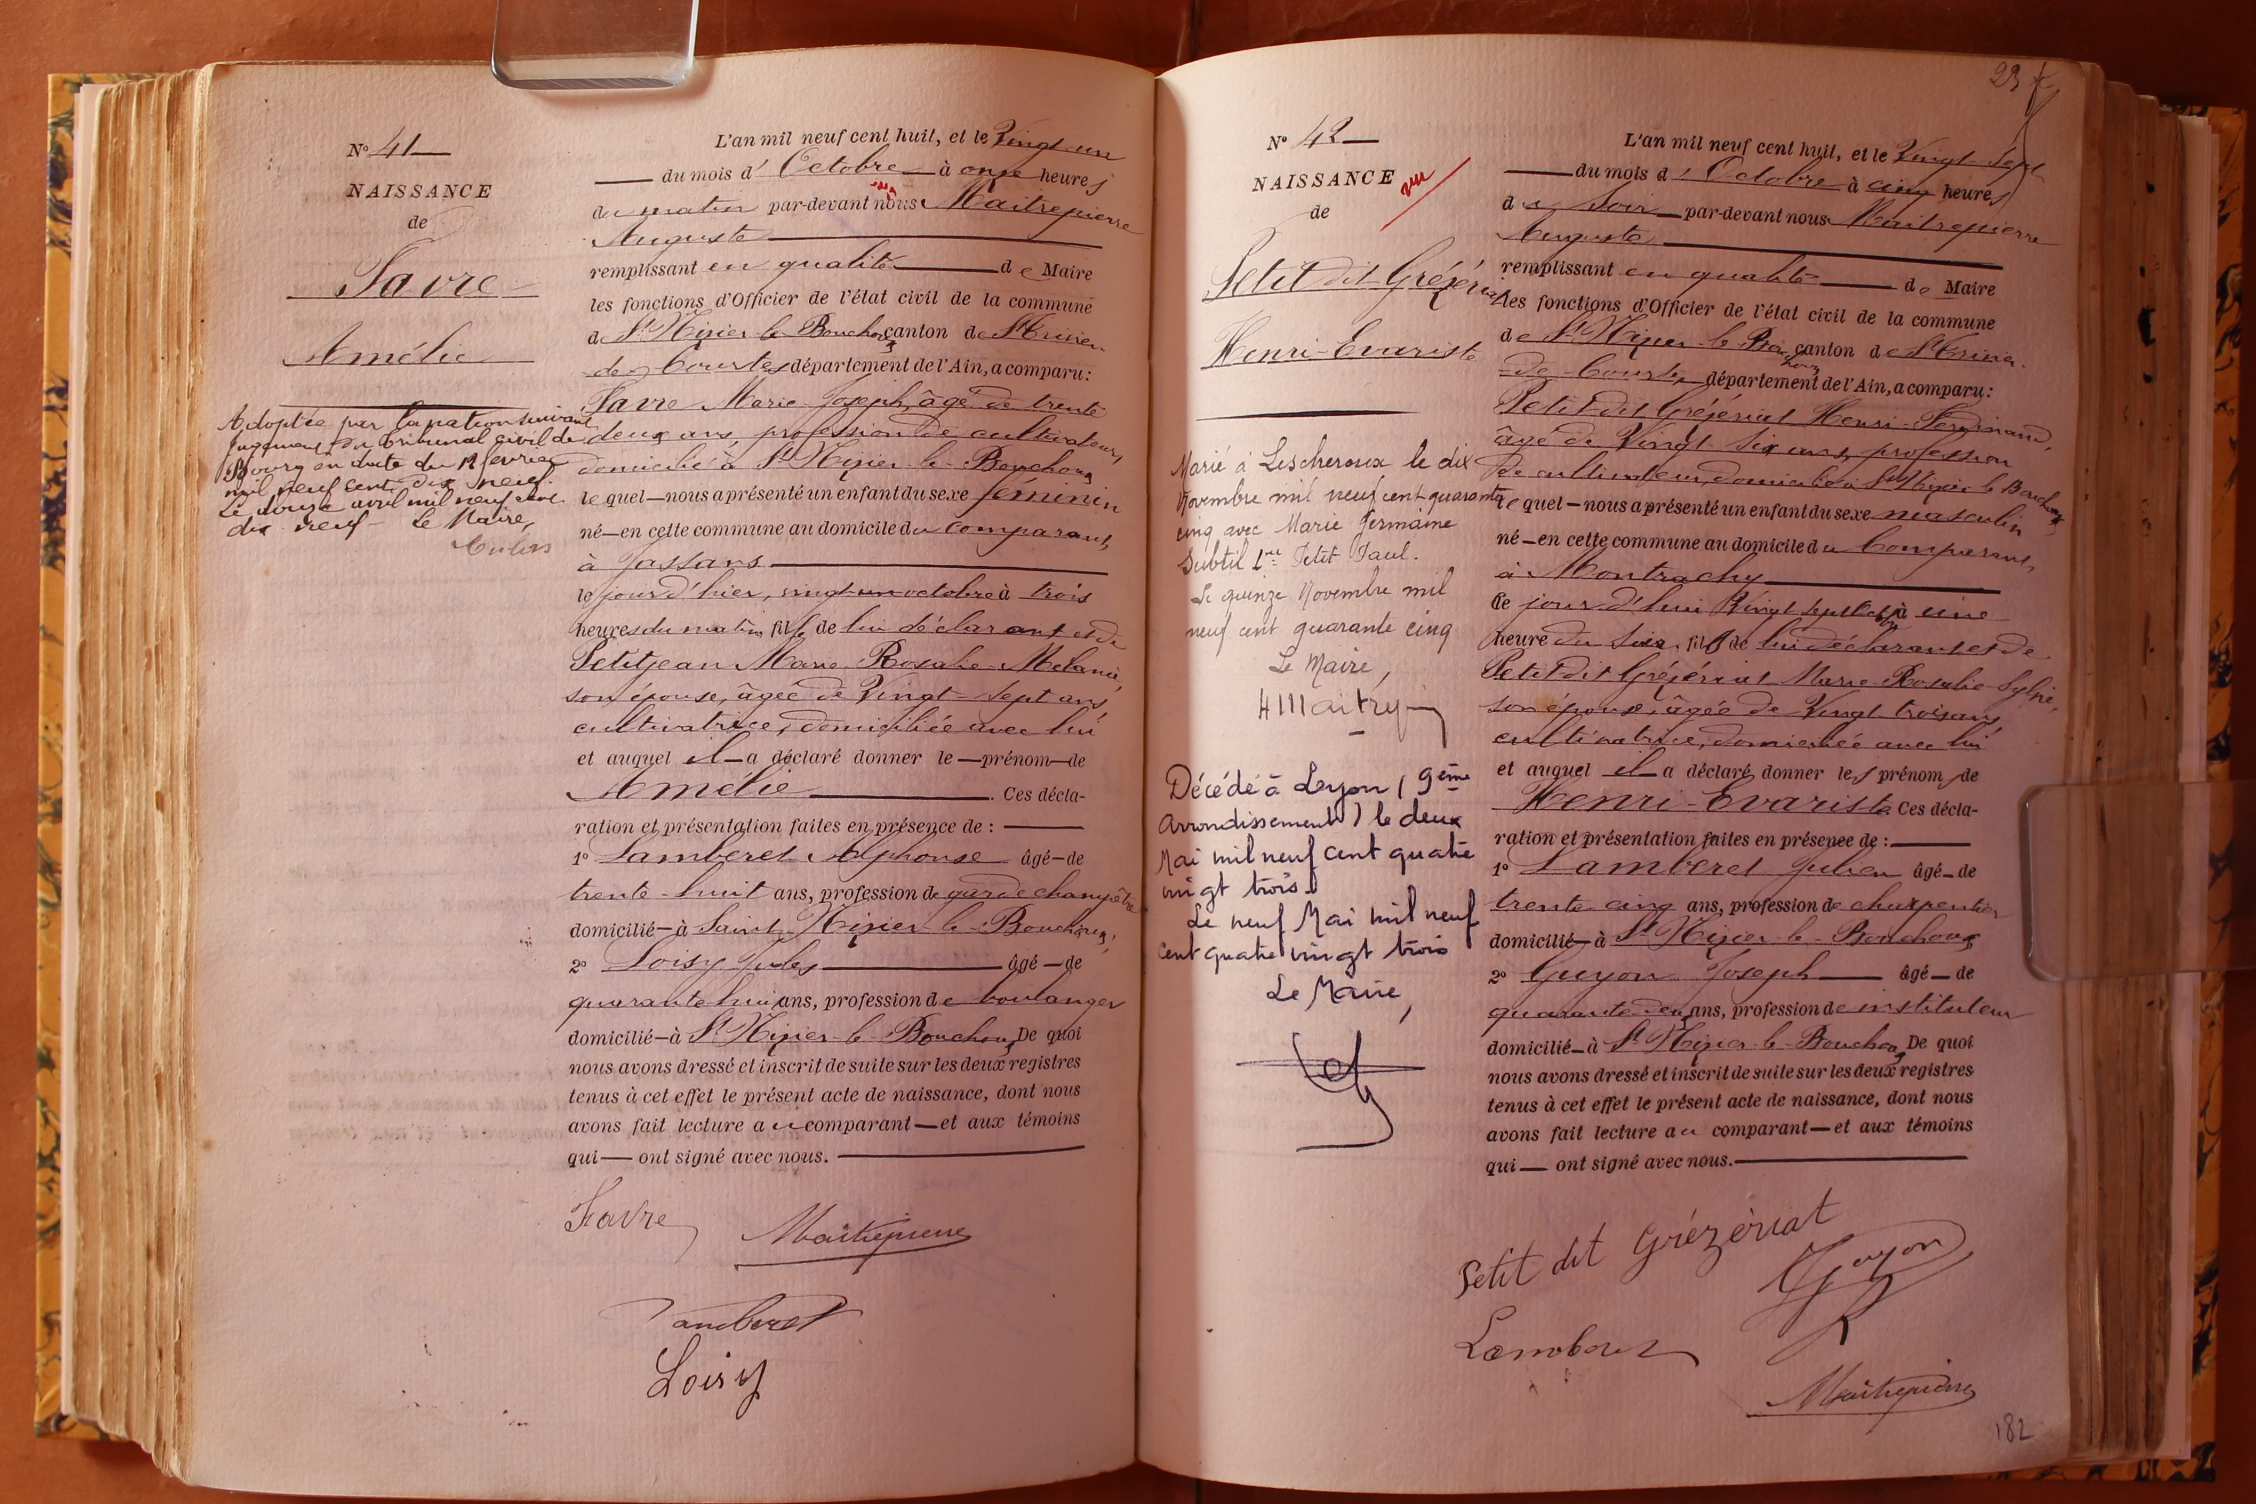 N° 41
NAISSANCE
de
Favre
Amélie
Adoptée par la nation suivant
jugement du tribunal civil de
Bourg en date du 12 février
mil neuf cent dix neuf.
Le douze avril mil neuf cent
dix neuf - Le Maire,
L'an mil neuf cent huit, et le Vingt un
du mois d' Octobre à onze heures
du matin par-devant nous Maitrepierre
Auguste
remplissant en qualité de Maire
les fonctions d'Officier de l'état civil de la commune
de St Nizier-le-Bouchoux canton de St Trivier-
de-Courtes département de l'Ain, a comparu:
Favre Marie Joseph, âgé de trente
deux ans, profession de cultivateur,
domicilié à St Nizier-le-Bouchoux
lequel nous a présenté un enfant du sexe féminin
né en cette commune au domicile du comparant,
à Jassans
le jour d'hier, vingt un octobre à trois
heures du matin, fille de lui déclarant et de
Petitjean Marie Rosalie Mélanie,
son épouse, âgée de Vingt-sept ans,
cultivatrice, domiciliée avec lui
et auquel il a déclaré donner le prénom de
Amélie . Ces décla-
ration et présentation faites en présence de :
1° Lamberet Alphonse âgé de
trente-huit ans, profession de garde champêtre
domicilié à Saint-Nizier-le-Bouchoux,
2° Loisy Jules âgé de
quarante huit ans, profession de boulanger
domicilié à St Nizier-le-Bouchoux De quoi
nous avons dressé et inscrit de suite sur les deux registres
tenus à cet effet le présent acte de naissance, dont nous
avons fait lecture au comparant et aux témoins
qui ont signé avec nous.
Favre
Maitrepierre
Lamberet
Loisy
23
N° 42
NAISSANCE
de
vu
Petit dit Grézériat
Henri-Evariste
Marié à Lescheroux le dix
Novembre mil neuf cent quarante
cinq avec Marie Germaine
Subtil Vve Petit Paul.
Le quinze Novembre mil
neuf cent quarante cinq
Le Maire,
Décédé à Lyon (9ème
Arrondissement) le deux
Mai mil neuf cent quatre
vingt trois.
Le neuf Mai mil neuf
cent quatre vingt trois
Le Maire,
L'an mil neuf cent huit, et le Vingt sept
du mois d' Octobre à cinq heures
du Soir par-devant nous Maitrepierre
Auguste
remplissant en qualité de Maire
les fonctions d'Officier de l'état civil de la commune
de St Nizier-le-Bouchoux canton de St Trivier-
de-Courtes département de l'Ain, a comparu:
Petit dit Grézériat Henri Ferdinand,
âgé de Vingt six ans, profession
de cultivateur, domicilié à St Nizier-le-Bouchoux,
lequel nous a présenté un enfant du sexe masculin
né en cette commune au domicile du Comparant,
à Montrachy
Ce jour d'hui Vingt sept oct. à une
heure du Soir, fils de lui déclarant et de
Petit dit Grézériat Marie Rosalie Sylvie,
son épouse, âgée de Vingt trois ans,
cultivatrice, domiciliée avec lui
et auquel il a déclaré donner les prénoms de
Henri-Evariste Ces décla-
ration et présentation faites en présence de :
1° Lamberet Julien âgé de
trente cinq ans, profession de charpentier
domicilié à St Nizier-le-Bouchoux
2° Guyon Joseph âgé de
quarante deux ans, profession de instituteur
domicilié à St Nizier-le-Bouchoux De quoi
nous avons dressé et inscrit de suite sur les deux registres
tenus à cet effet le présent acte de naissance, dont nous
avons fait lecture au comparant et aux témoins
qui ont signé avec nous.
Petit dit Grézériat
Guyon
Lamberet
Maitrepierre
182